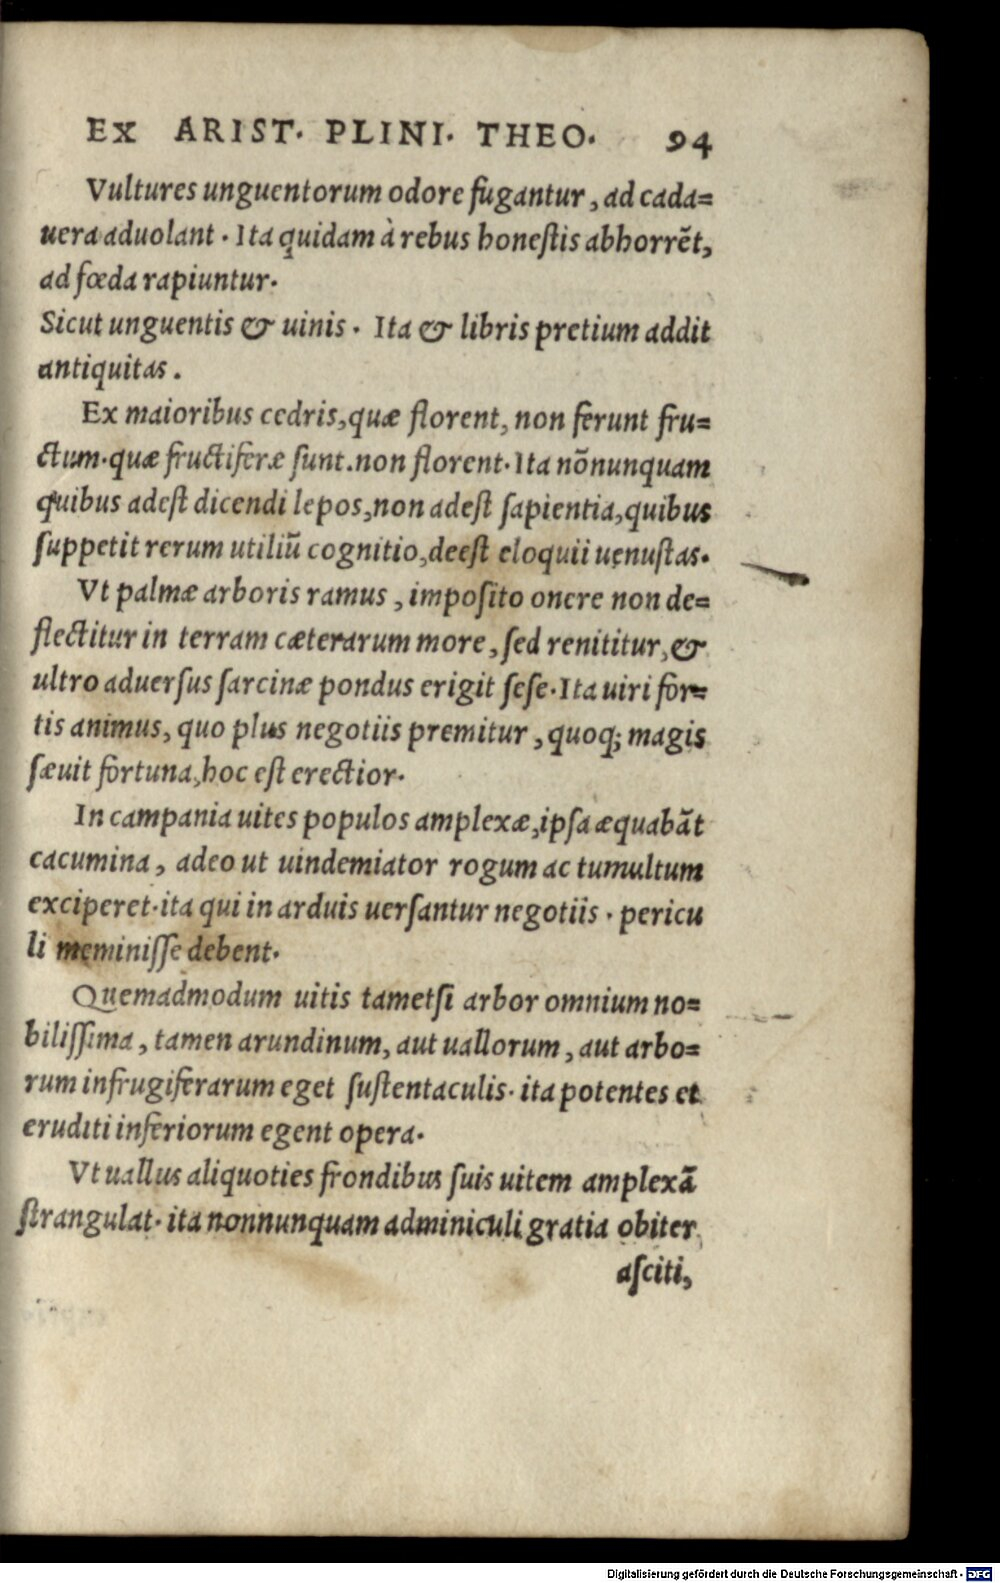 EX ARIST. PLINI. THEO. 94
Vultures unguentorum odore fugantur, ad cada=
uera aduolant. Ita quidam à rebus honeſtis abhorrẽt,
ad fœda rapiuntur.
Sicut unguentis & uinis. Ita & libris pretium addit
antiquitas.
Ex maioribus cedris, quæ florent, non ferunt fru=
ctum. quæ fructiferæ ſunt. non florent. Ita nõnunquam
quibus adeſt dicendi lepos, non adeſt ſapientia, quibus
ſuppetit rerum utiliũ cognitio, deeſt eloquii uenuſtas.
Vt palmæ arboris ramus, impoſito onere non de=
flectitur in terram cæterarum more, ſed renititur, &
ultro aduerſus ſarcinæ pondus erigit ſeſe. Ita uiri for=
tis animus, quo plus negotiis premitur, quoq; magis
ſæuit fortuna, hoc eſt erectior.
In campania uites populos amplexæ, ipſa æquabãt
cacumina, adeo ut uindemiator rogum ac tumultum
exciperet. ita qui in arduis uerſantur negotiis. pericu
li meminiſſe debent.
Quemadmodum uitis tametſi arbor omnium no=
biliſſima, tamen arundinum, aut uallorum, aut arbo=
rum infrugiferarum eget ſuſtentaculis. ita potentes et
eruditi inferiorum egent opera.
Vt uallus aliquoties frondibus ſuis uitem amplexã
ſtrangulat. ita nonnunquam adminiculi gratia obiter
aſciti,
Digitalisierung gefördert durch die Deutsche Forschungsgemeinschaft - DFG